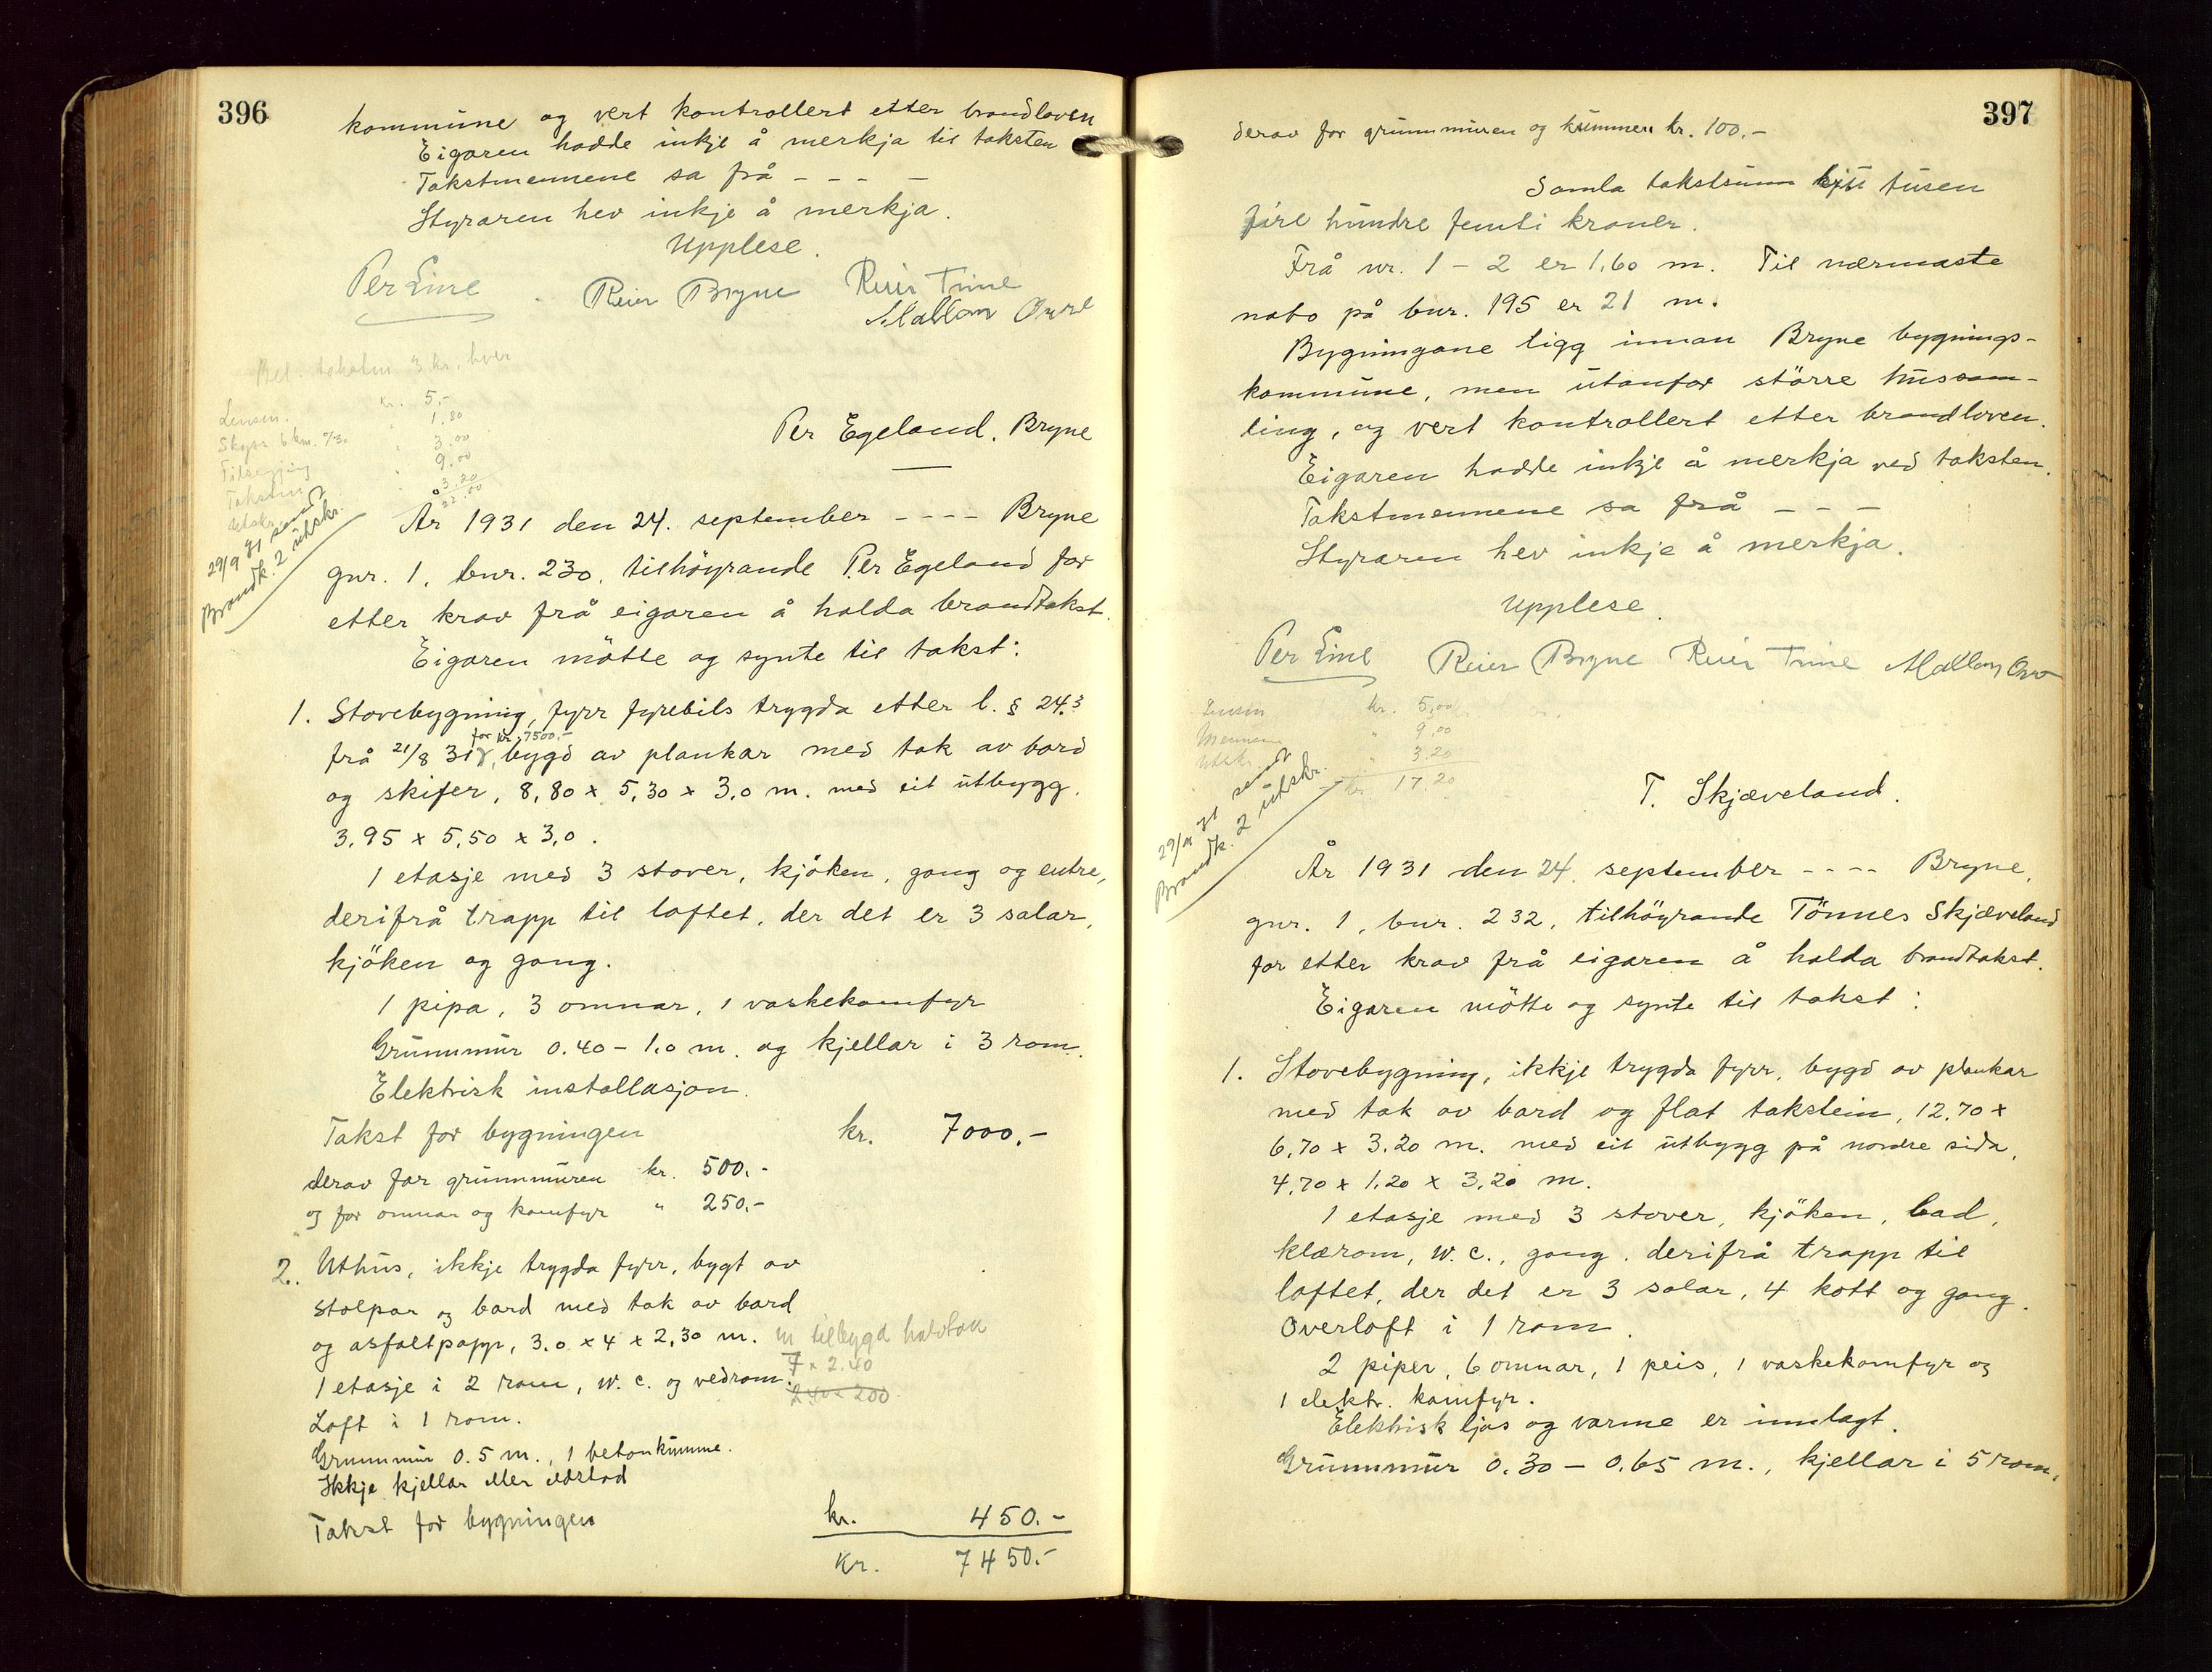 396
kommune og vert kontrollert etter brandloven
Eigaren hadde inkje å merkja til taksten
Takstmennene sa frå - - - -
Styraren hev inkje å merkja.
Upplese.
Per Line Reier Bryne Reier Time
Bet. takstm. 3 kr. hver
Lensm. kr. 5,-
Skyss 6 km. 1,80
3.00
9,00
3.20
22.00
Per Egeland, Bryne
29/9 31 sendt
Brandk. 2 utskr.
År 1931 den 24. september - - - - Bryne
gnr. 1, bnr. 230, tilhöyrande Per Egeland for
etter krav frå eigaren å halda brandtakst.
Eigaren mötte og synte til takst:
1. Stovebygning, fyrr fyrebils trygda etter l. § 24.3
for kr. 7500.-
frå 21/8 31, bygd av plankar med tak av bord
og skifer, 8,80 x 5,30 x 3,0 m. med eit utbygg.
3,95 x 5,50 x 3,0.
1 etasje med 3 stover, kjöken, gang og entre,
derifrå trapp til loftet, der det er 3 salar,
kjöken og gang.
1 pipa, 3 omnar, 1 vaskekomfyr
Grunnmur 0.40 - 1.0 m. og kjellar i 3 rom.
Elektrisk installasjon.
Takst for bygningen kr. 7000.-
derav for grunnmuren kr. 500.-
og for omnar og komfyr " 250.-
2. Uthus, ikkje trygda fyrr, bygt av
stolpar og bord med tak av bord
og asfaltpapp, 3.0 x 4 x 2,30 m. m tilbygd halvtak
7 x 2.40
1 etasje i 2 rom, w.c. og vedrom.
240 x 200
Loft i 1 rom.
Grunnmur 0.5 m., 1 betonkumme.
Ikkje kjellar eller eldstad
Takst for bygningen kr. 450.-
Kr. 7450.-
397
derav for grunnmuren og kummen kr. 100.-
Samla takstsum sju tusen
fire hundre femti kroner.
Frå nr. 1 - 2 er 1,60 m. Til nærmaste
nabo på bnr. 195 er 21 m.
Bygningane ligg innan Bryne bygnings-
kommune, men utanfor större hussam-
ling, og vert kontrollert etter brandloven.
Eigaren hadde inkje å merkja ved taksten.
Takstmennene sa frå - - -
Styraren hev inkje å merkja.
Upplese.
Per Line Reier Bryne Reier Time
Lensm kr. 5,00
Mennene " 9,00
Utskr. " 3.20
kr. 17,20
T. Skjæveland.
sendt
Brandk. 2 utskr.
År 1931 den 24. september - - - - Bryne,
gnr. 1, bnr. 232, tilhöyrande Tönnes Skjæveland
for etter krav frå eigaren å halda brandtakst.
Eigaren mötte og synte til takst:
1. Stovebygning, ikkje trygda fyrr, bygd av plankar
med tak av bord og flat takstein, 12,70 x
6,70 x 3,20 m. med eit utbygg på nordre sida,
4,70 x 1,20 x 3,20 m.
1 etasje med 3 stover, kjöken, bad,
klærom, w.c., gang. derifrå trapp til
loftet, der det er 3 salar, 4 kott og gang.
Overloft i 1 rom.
2 piper, 6 omnar, 1 peis, 1 vaskekomfyr og
1 elektr. komfyr.
Elektrisk ljos og varme er innlagt.
Grunnmur 0,30 - 0,65 m., kjellar i 5 rom.